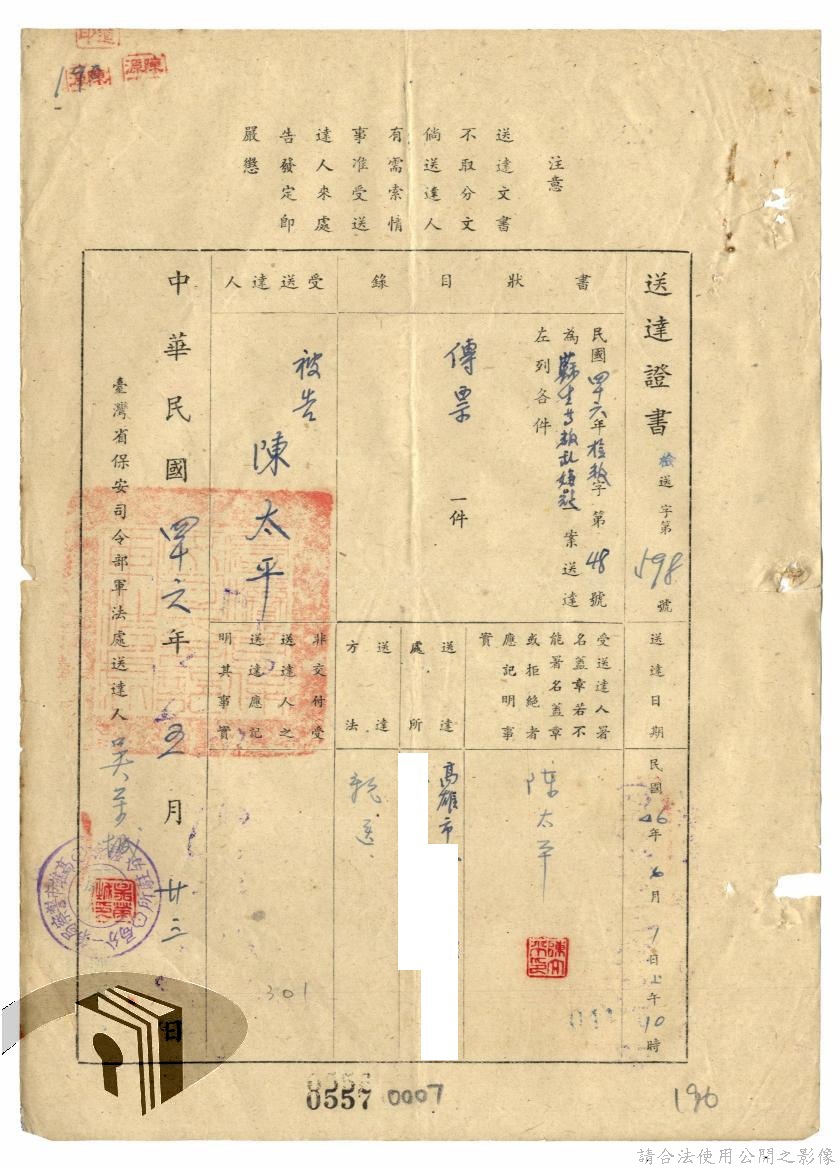 陳源
注意
送達文書
不取分文
倘送達人
有需索情
事准受送
達人來處
告發定即
嚴懲
送達證書
檢送字第598號
書狀目錄
民國四十六年檢叛字第48號
為蘇生等叛亂嫌疑案送達
左列各件
傳票一件
受送達人
被告陳太平
送達日期
民國46年
月
日上午10時
受送達人署
名蓋章若不
能署名蓋章
或拒絕者
應記明事
實
陳太平
送達
處所
高雄市
送達
方法
親送
非交付受
送達人之
送達應記
明其事實
中華民國四十六年五月廿三日
臺灣省保安司令部軍法處送達人
301
0557
0007
190
請合法使用公開之影像